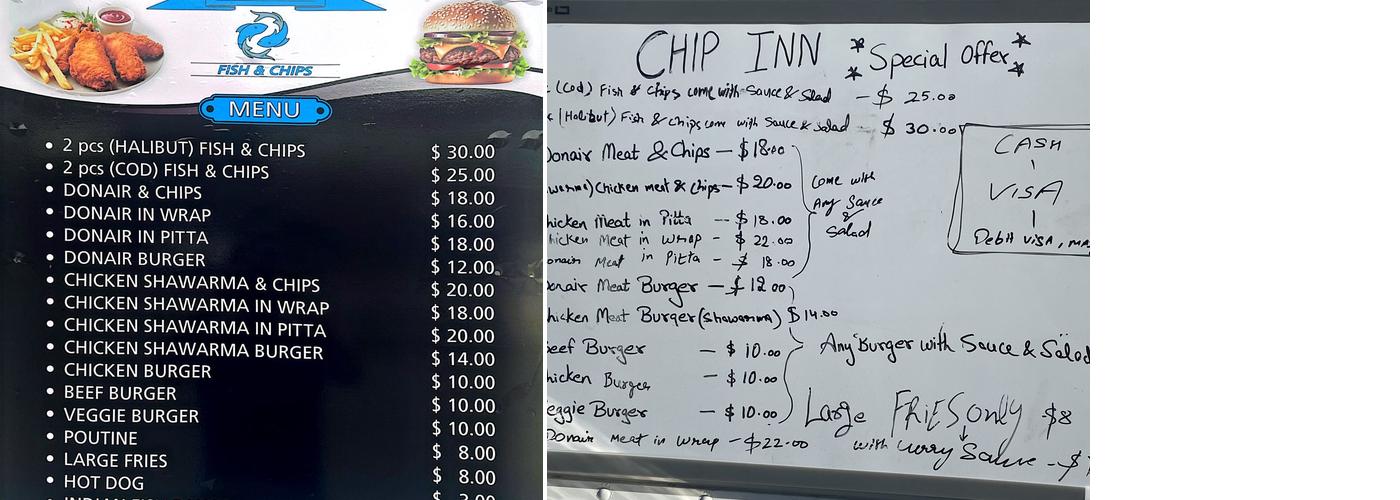 FISH & CHIPS
MENU
• 2 pcs (HALIBUT) FISH & CHIPS $ 30.00
• 2 pcs (COD) FISH & CHIPS $ 25.00
• DONAIR & CHIPS $ 18.00
• DONAIR IN WRAP $ 16.00
• DONAIR IN PITTA $ 18.00
• DONAIR BURGER $ 12.00
• CHICKEN SHAWARMA & CHIPS $ 20.00
• CHICKEN SHAWARMA IN WRAP $ 18.00
• CHICKEN SHAWARMA IN PITTA $ 20.00
• CHICKEN SHAWARMA BURGER $ 14.00
• CHICKEN BURGER $ 10.00
• BEEF BURGER $ 10.00
• VEGGIE BURGER $ 10.00
• POUTINE $ 8.00
• LARGE FRIES $ 8.00
• HOT DOG
CHIP INN * Special Offer *
(Cod) Fish & Chips come with Sauce & Salad - $ 25.00
(Halibut) Fish & chips come with Sauce & salad - $ 30.00
Donair Meat & Chips - $18.00
Chicken meat & chips - $ 20.00
hicken Meat in Pitta - $ 18.00
hicken Meat in wrap - $ 22.00
onair Meat in Pitta - $ 18.00
Come with
Any Sauce
&
Salad
CASH
VISA
Debit VISA, ma
onair Meat Burger - $ 12.00
hicken Meat Burger (Shawarma) $ 14.00
Beef Burger - $ 10.00
hicken Burger - $ 10.00
eggie Burger - $ 10.00
Any Burger with Sauce & Salad
Donair meat in wrap - $22.00
Large FRIES only $8
with curry Sauce - $